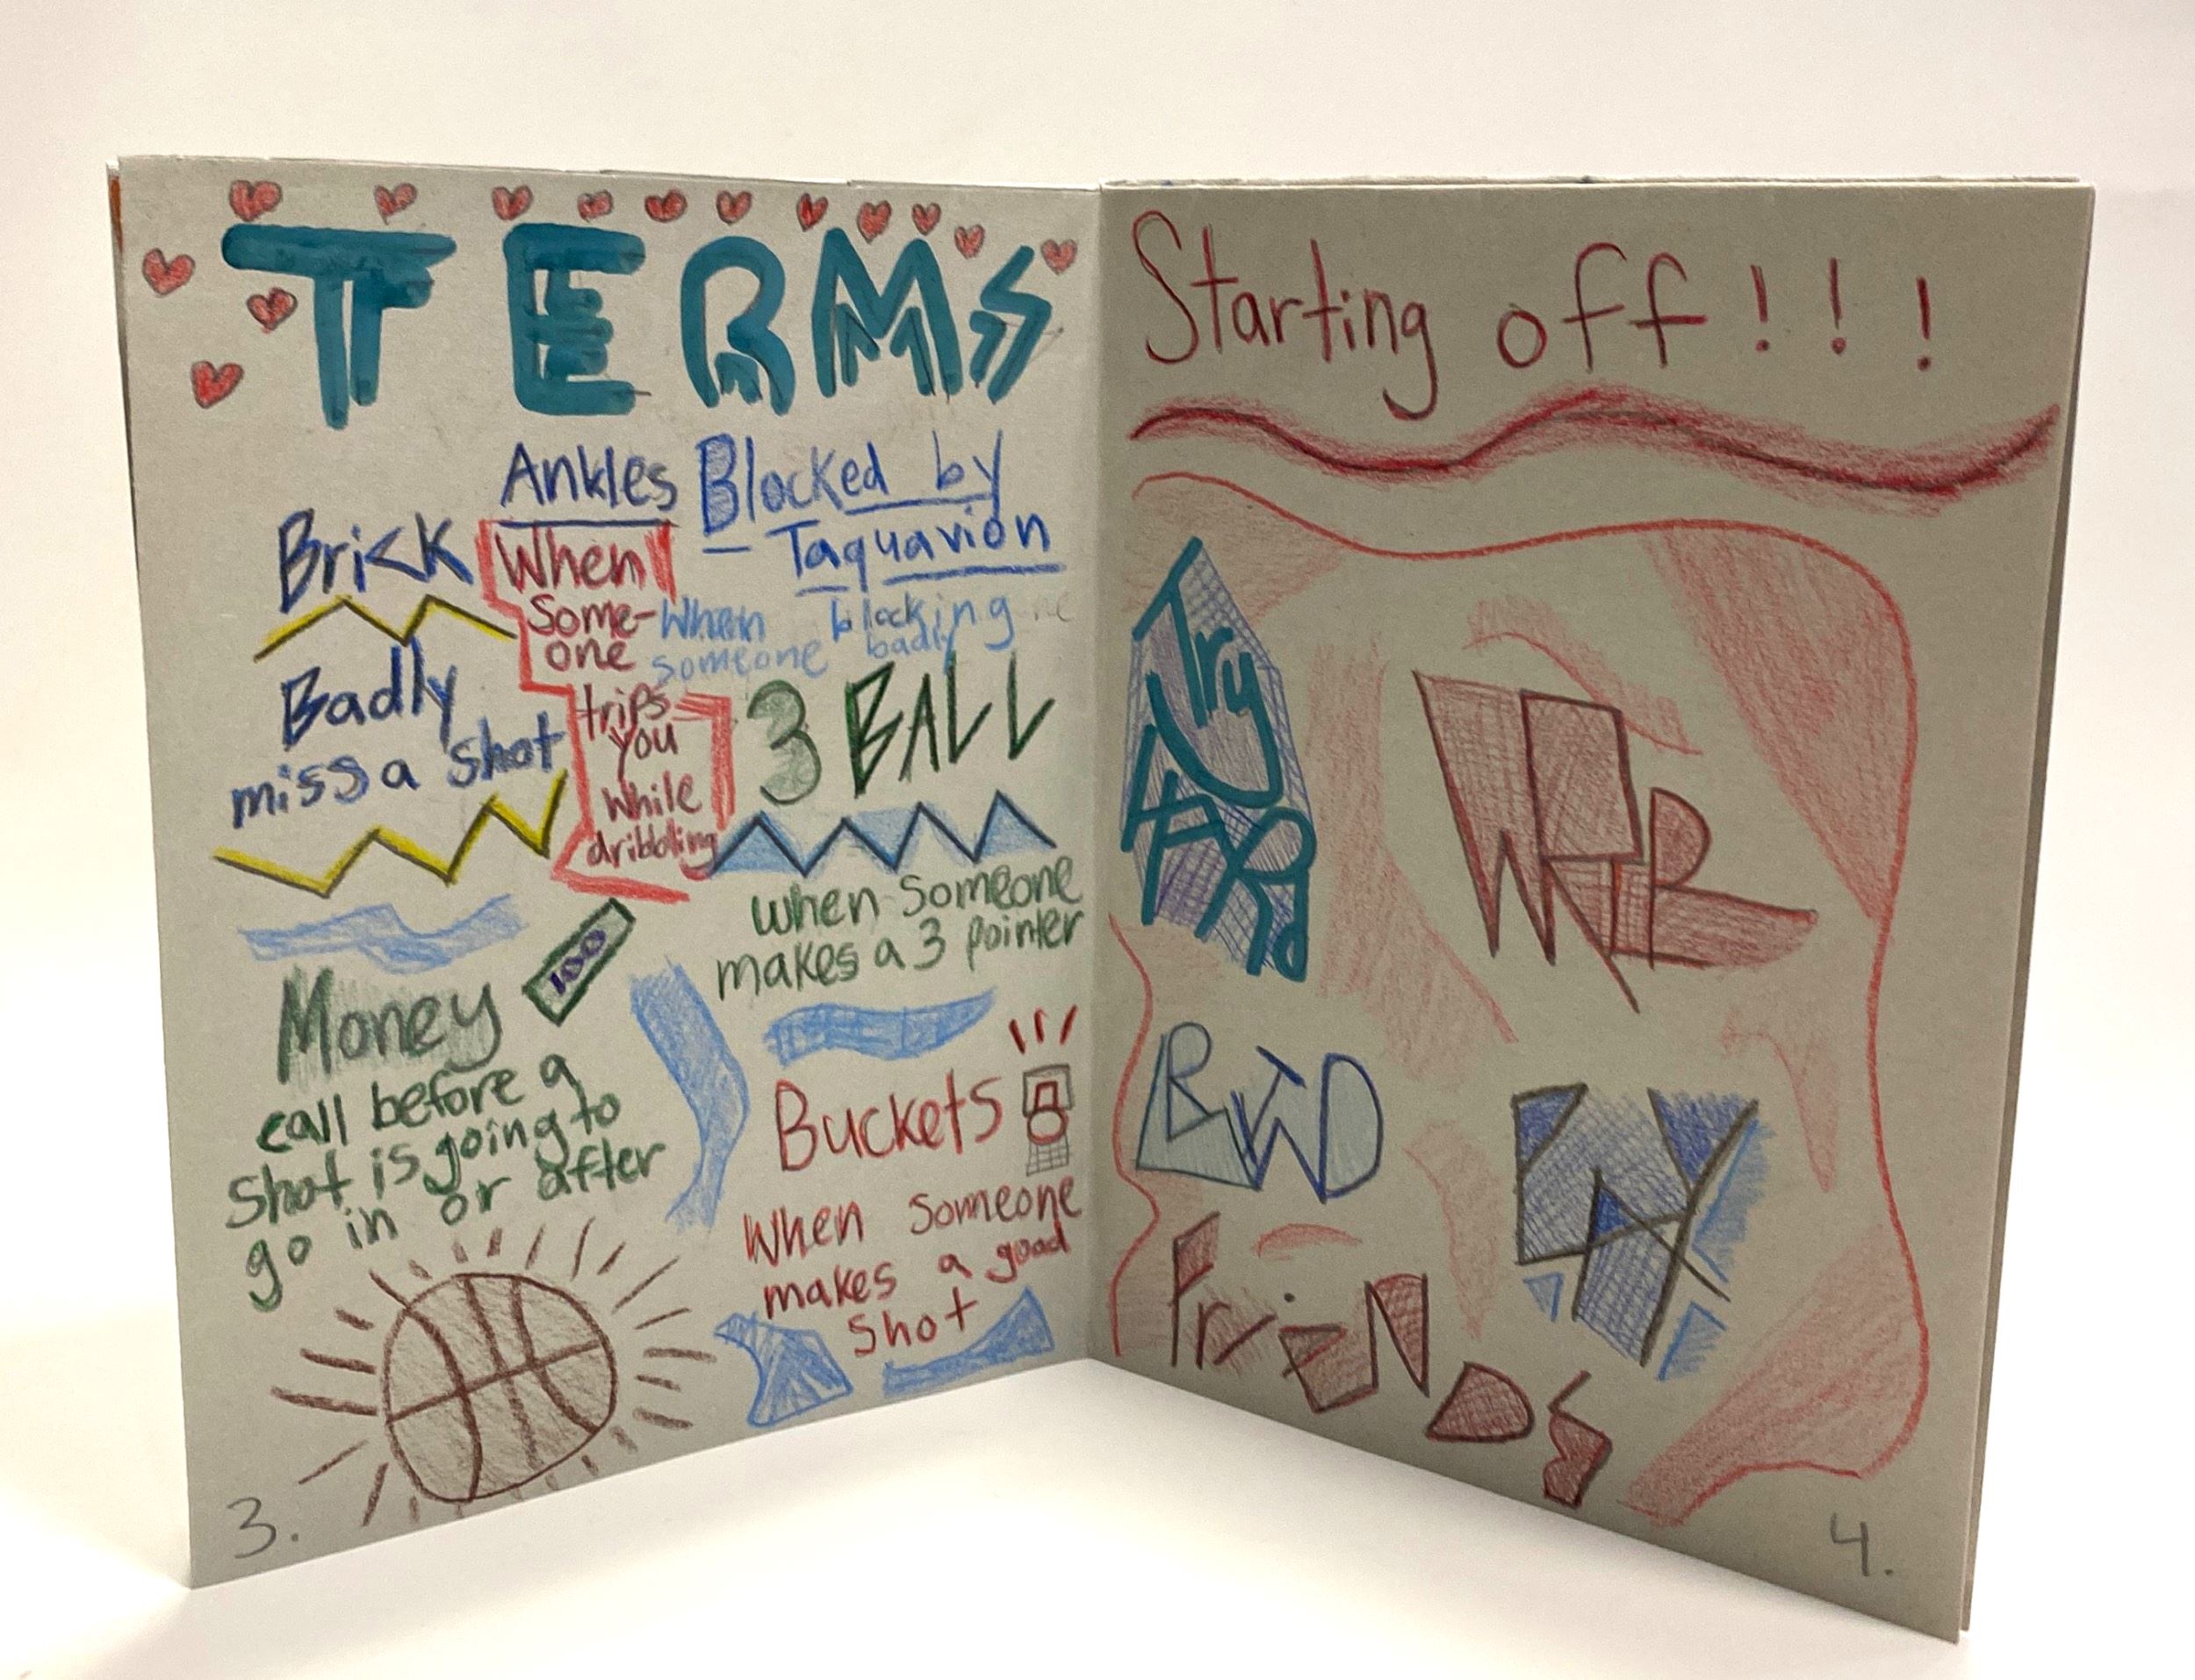 TERMS
Brick
Badly
miss a shot
Ankles
When
Some-
one
trips
you
while
dribbling
Blocked by
- Taquavion
When blocking
someone badly
3 BALL
when someone
makes a 3 pointer
Money
100
call before a
shot is going to
go in or after
Buckets
When someone
makes a good
shot
3.
Starting off!!!
Try
Friends
4.